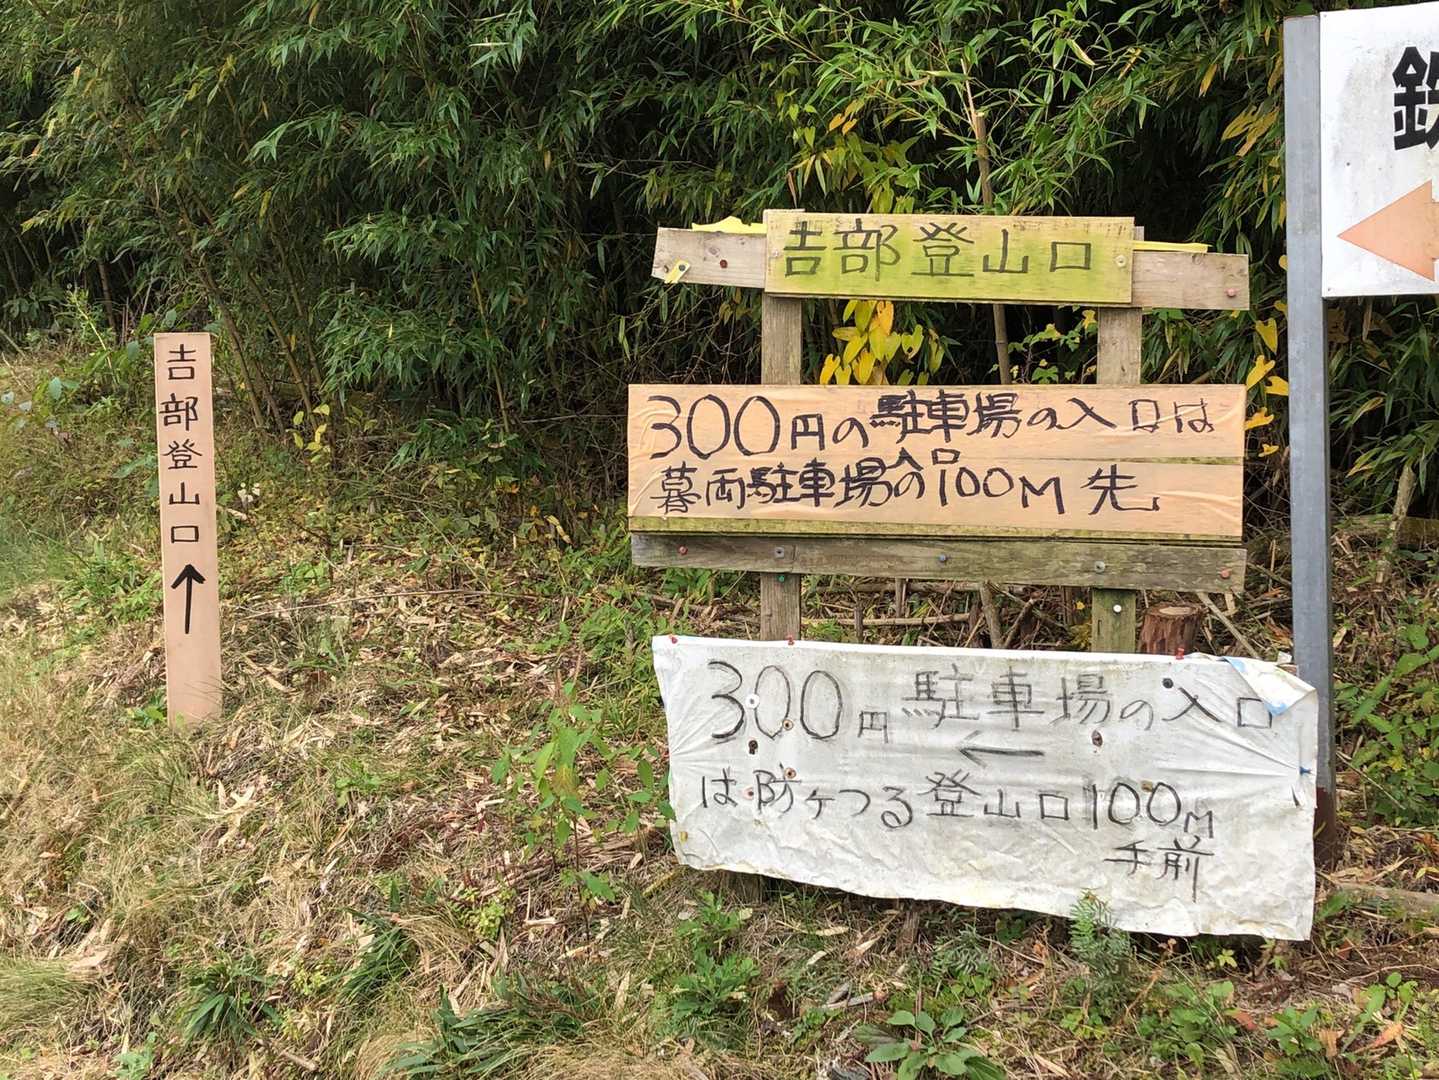 吉部登山口
↑
吉部登山口
300円の駐車場の入口は
暮雨駐車場入口の100M先
300円駐車場の入口
←
は防ヶつる登山口100M
手前
鉄